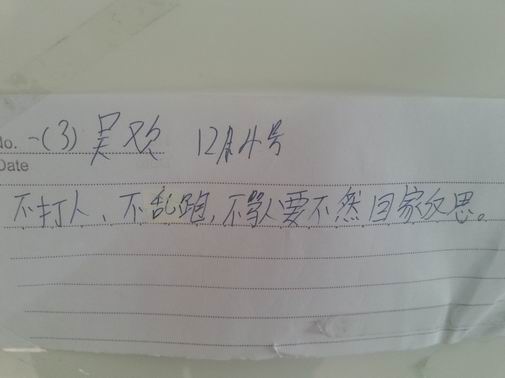 No. 一(3) 吴欢 12月4号
Date
不打人、不乱跑,不骂人要不然回家反思。